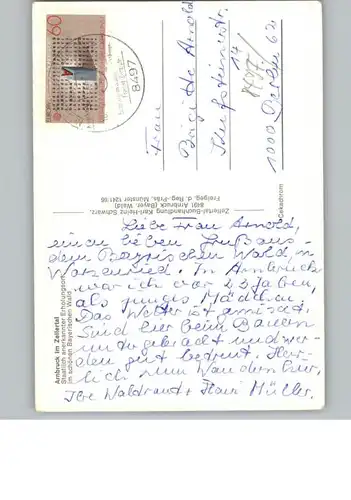 60
8497
Frau
Brigitte Arnold
14
1000 Berlin 62
Cekachrom
Zellertal-Buchhandlung Karl-Heinz Schwarz,
8491 Arnbruck (Bayer. Wald)
Freigeg. d. Reg.-Präs. Münster
Arnbruck im Zellertal
Staatlich anerkannter Erholungsort
im schönen Bayerischen Wald
Liebe Frau Arnold,
einen lieben Gruß aus
dem Bayrischen Wald, in
In Arnbruck
war ich vor 23 Jahren,
als junges Mädchen.
Das Wetter ist gemischt.
Sind hier beim Bauern
untergebracht und wer-
den gut betreut. Herr-
lich zum Wandern hier.
Ihre Waltraut + Hans Müller.